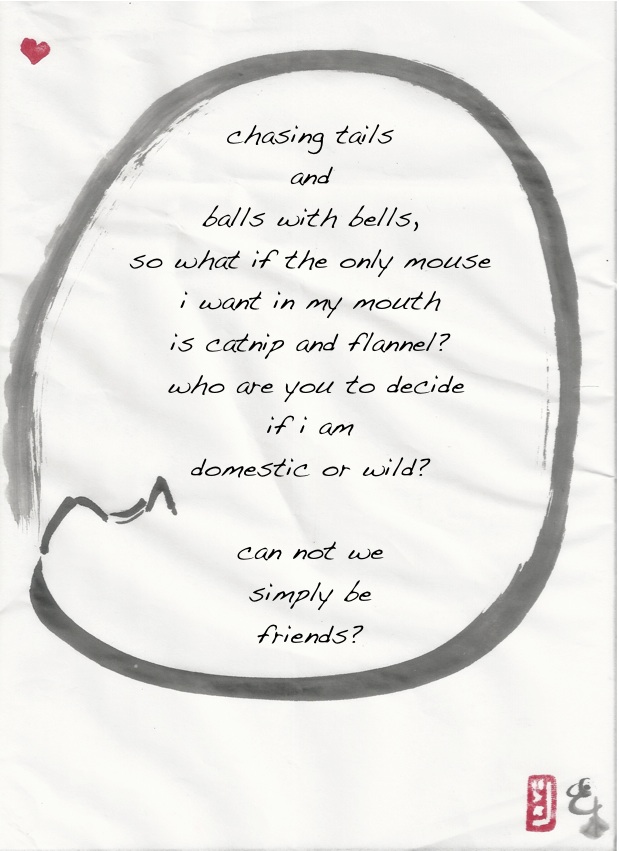 chasing tails
and
balls with bells,
so what if the only mouse
i want in my mouth
is catnip and flannel?
who are you to decide
if i am
domestic or wild?
can not we
simply be
friends?